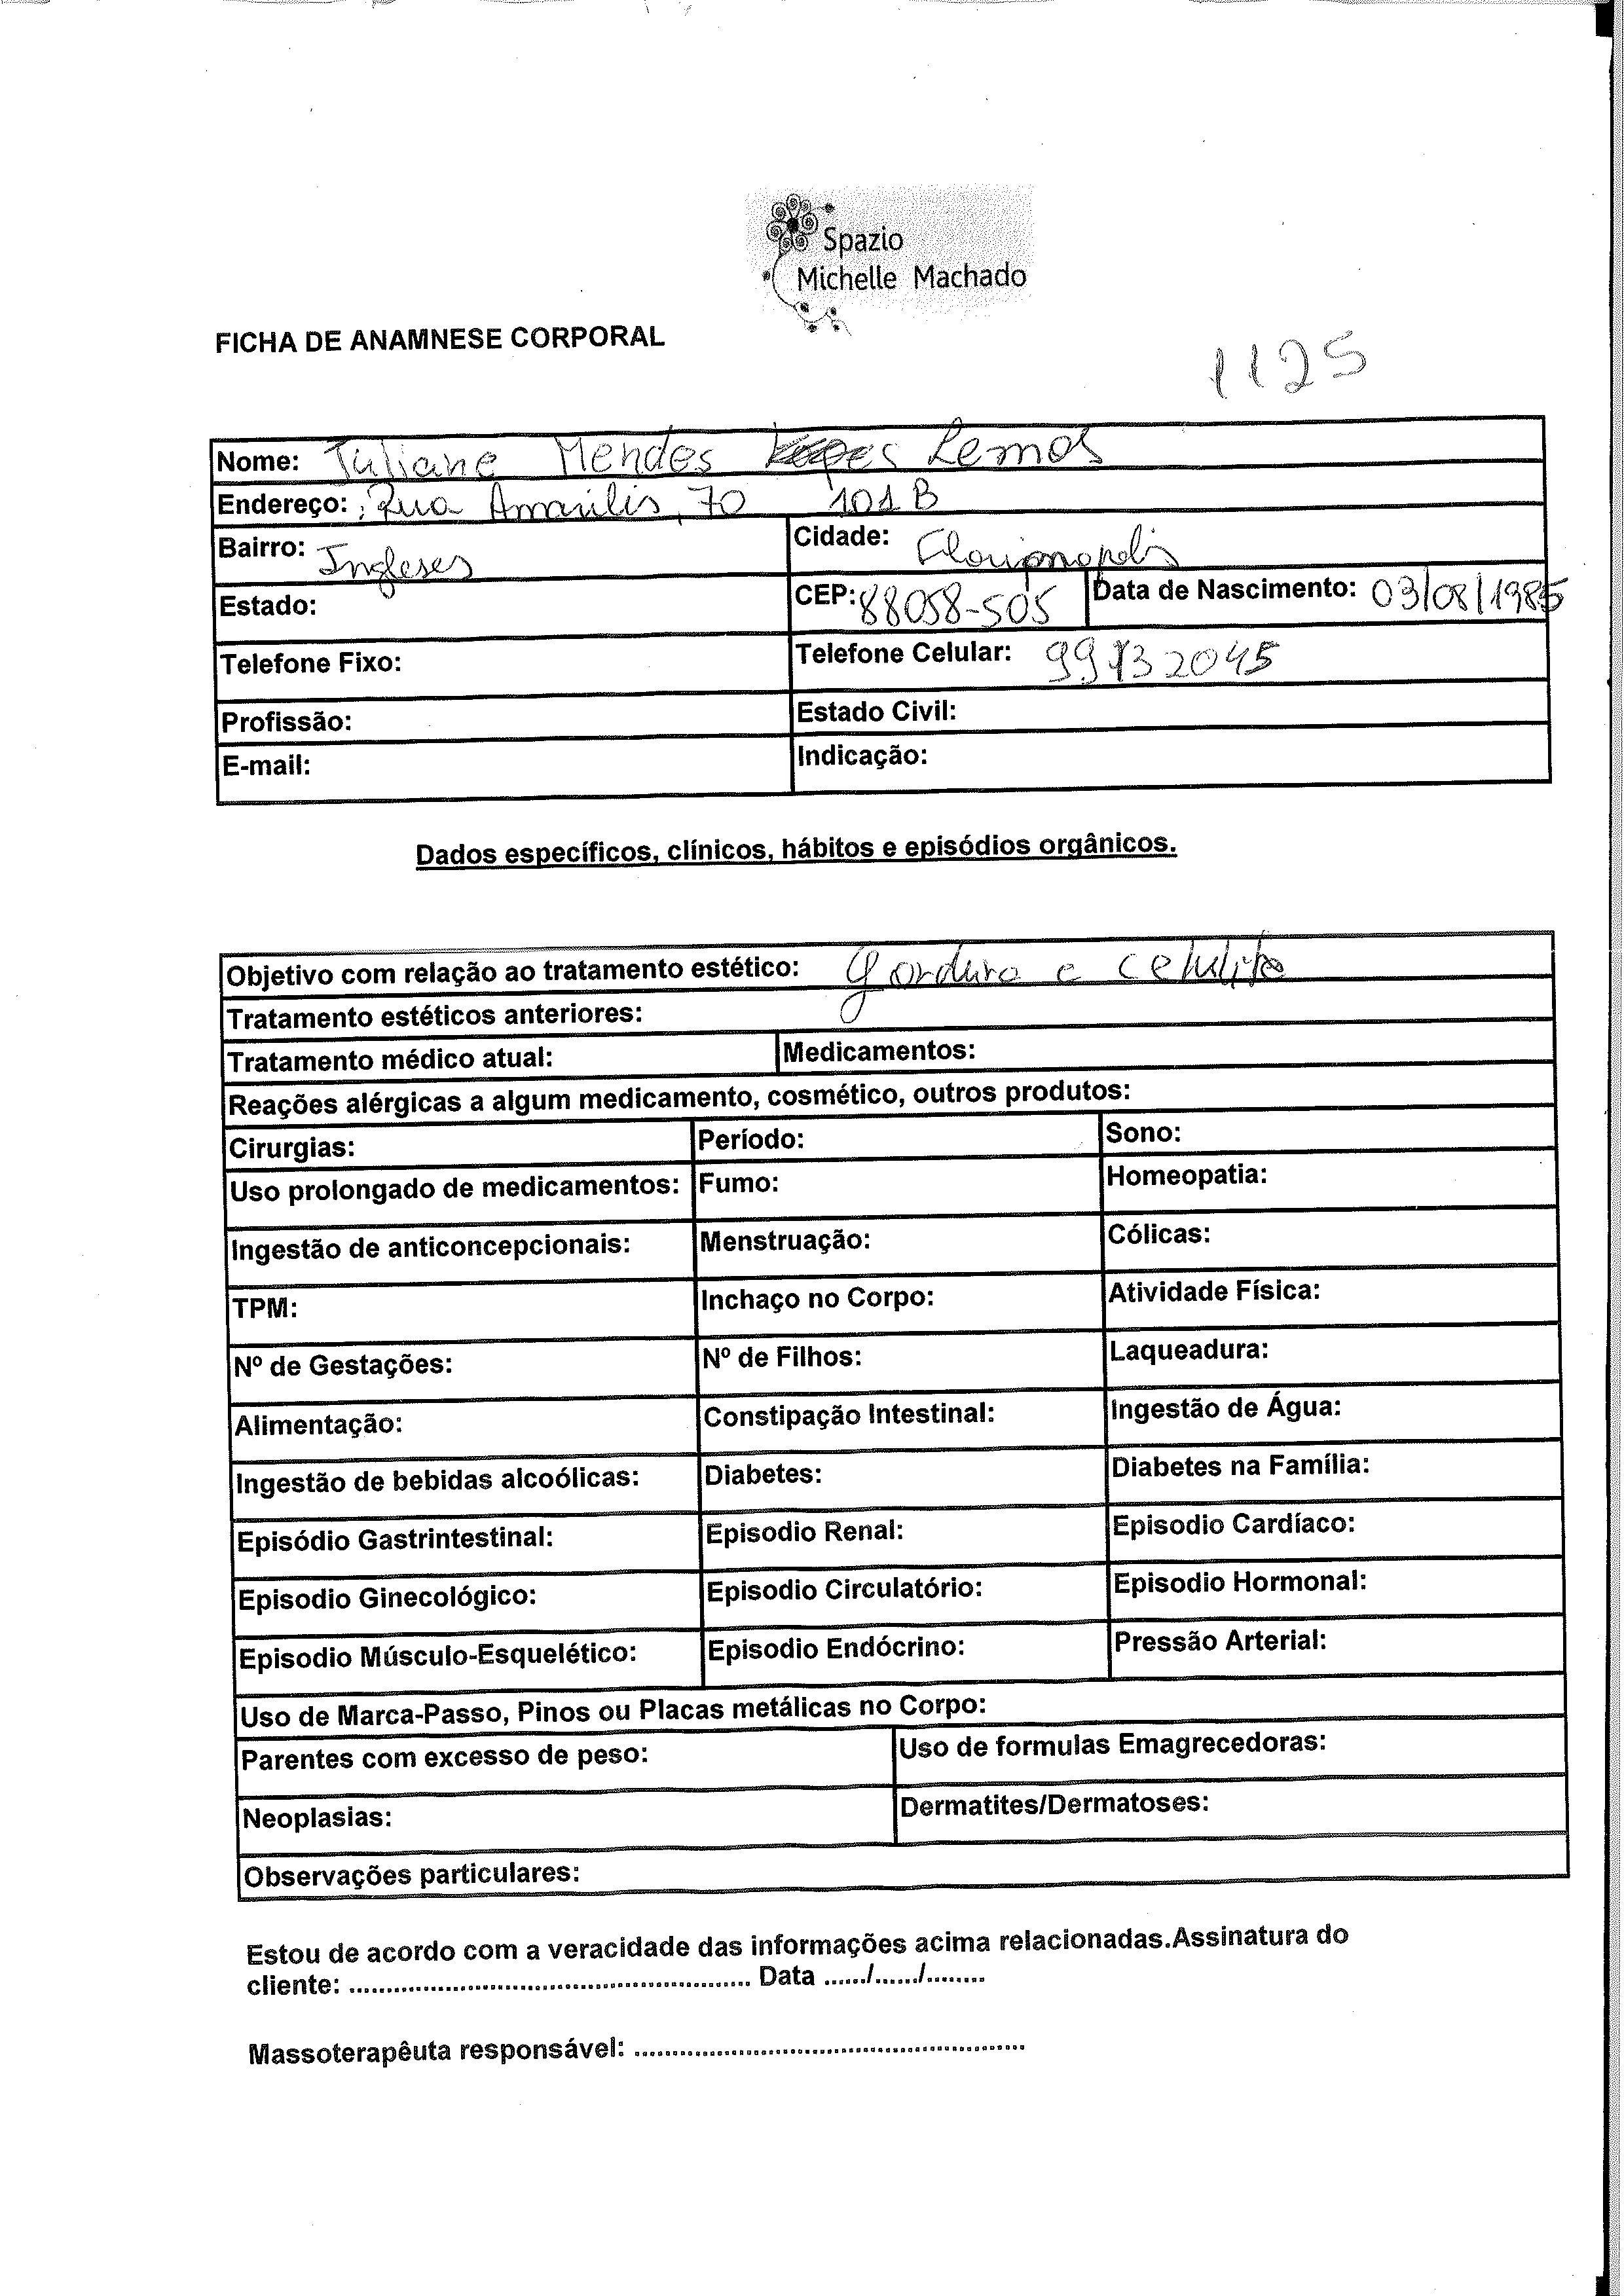 Spazio
Michelle Machado
FICHA DE ANAMNESE CORPORAL
1125
Nome: Juliane Mendes Lemos
Endereço: Rua Amarilis, 70 101B
Bairro: Ingleses Cidade: Florianopolis
Estado: CEP: 88058-505 Data de Nascimento: 03/08/1985
Telefone Fixo: Telefone Celular:
Profissão: Estado Civil:
E-mail: Indicação:
Dados específicos, clínicos, hábitos e episódios orgânicos.
Objetivo com relação ao tratamento estético: gordura e celulite
Tratamento estéticos anteriores:
Tratamento médico atual: Medicamentos:
Reações alérgicas a algum medicamento, cosmético, outros produtos:
Cirurgias: Período: Sono:
Uso prolongado de medicamentos: Fumo: Homeopatia:
Ingestão de anticoncepcionais: Menstruação: Cólicas:
TPM: Inchaço no Corpo: Atividade Física:
Nº de Gestações: Nº de Filhos: Laqueadura:
Alimentação: Constipação Intestinal: Ingestão de Água:
Ingestão de bebidas alcoólicas: Diabetes: Diabetes na Família:
Episódio Gastrintestinal: Episodio Renal: Episodio Cardíaco:
Episodio Ginecológico: Episodio Circulatório: Episodio Hormonal:
Episodio Músculo-Esquelético: Episodio Endócrino: Pressão Arterial:
Uso de Marca-Passo, Pinos ou Placas metálicas no Corpo:
Parentes com excesso de peso: Uso de formulas Emagrecedoras:
Neoplasias: Dermatites/Dermatoses:
Observações particulares:
Estou de acordo com a veracidade das informações acima relacionadas.Assinatura do
cliente: ...................................................... Data ....../....../........
Massoterapêuta responsável: .....................................................